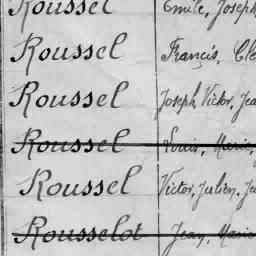 Roussel Emile, Joseph
Roussel Francis, Cle
Roussel Joseph Victor, Jea
Roussel Louis, Marie,
Roussel Victor, Julien, Ju
Rousselot Jean, Marie